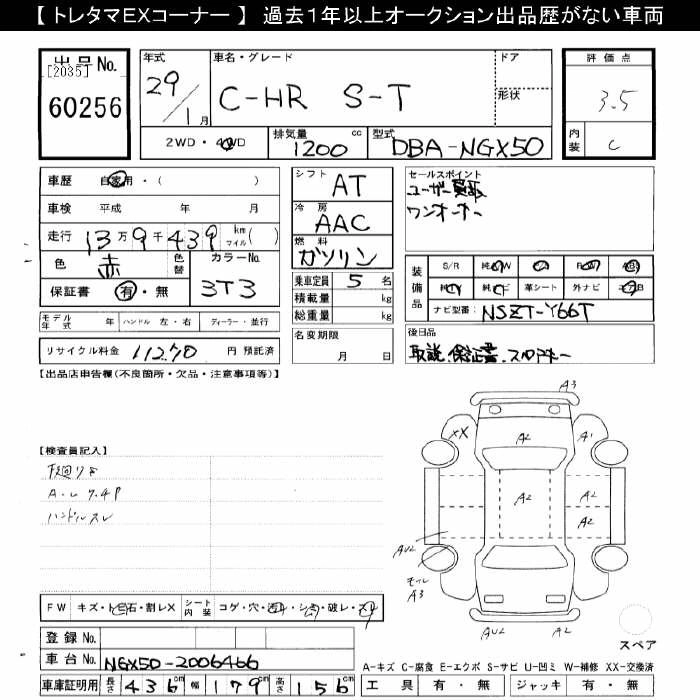 【 トレタマEXコーナー 】 過去1年以上オークション出品歴がない車両
出品No.
[2035]
60256
年式
29/1月
車名・グレード
C-HR S-T
ドア
形状
評価点
3.5
内装
C
2WD・4WD
排気量
1200 cc
型式
DBA-NGX50
車歴 自家用・( )
車検 平成 年 月
走行 13万9千439 km マイル( )
色 赤
色替
カラーNo.
3T3
保証書 有・無
シフト
AT
冷房
AAC
燃料
ガソリン
乗車定員 5 名
積載量 kg
総重量 kg
セールスポイント
ユーザー買取
ワンオーナー
装備品
S/R
革シート
外ナビ
ナビ型番: NSZT-Y66T
モデル年式 年 ハンドル 左・右 ディーラー・並行
リサイクル料金 11270 円 預託済
名変期限
月 日
後日品
取説、保証書、スペアキー
【出品店申告欄(不良箇所・欠品・注意事項等)】
【検査員記入】
下廻りサ
ハンドルスレ
FW キズ・飛石・割レX
シート内装 コゲ・穴・
・破レ・
A3
XX
A2
A1
A2
A2
A2
AU2
モール
A3
AU2
A2
スペア
登録No.
車台No. NGX50-2006466
A-キズ C-腐食 E-エクボ S-サビ U-凹ミ W-補修 XX-交換済
車庫証明用 長さ 436cm 幅 179cm 高さ 156cm
工具 有・無 ジャッキ 有・無